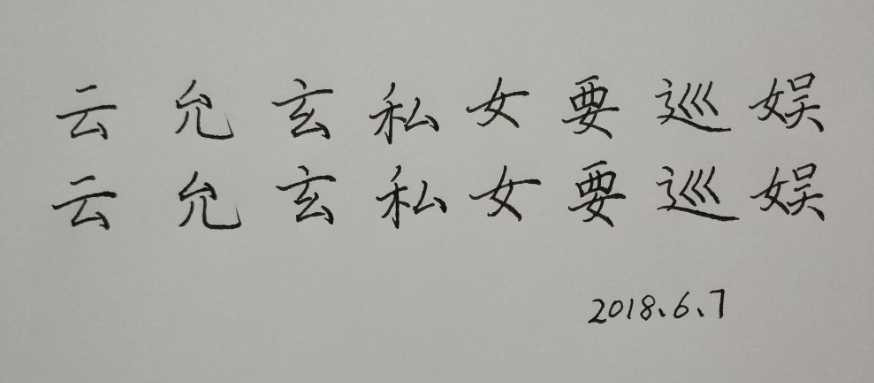 云 允 玄 私 女 要 巡 娱
云 允 玄 私 女 要 巡 娱
2018、6、7